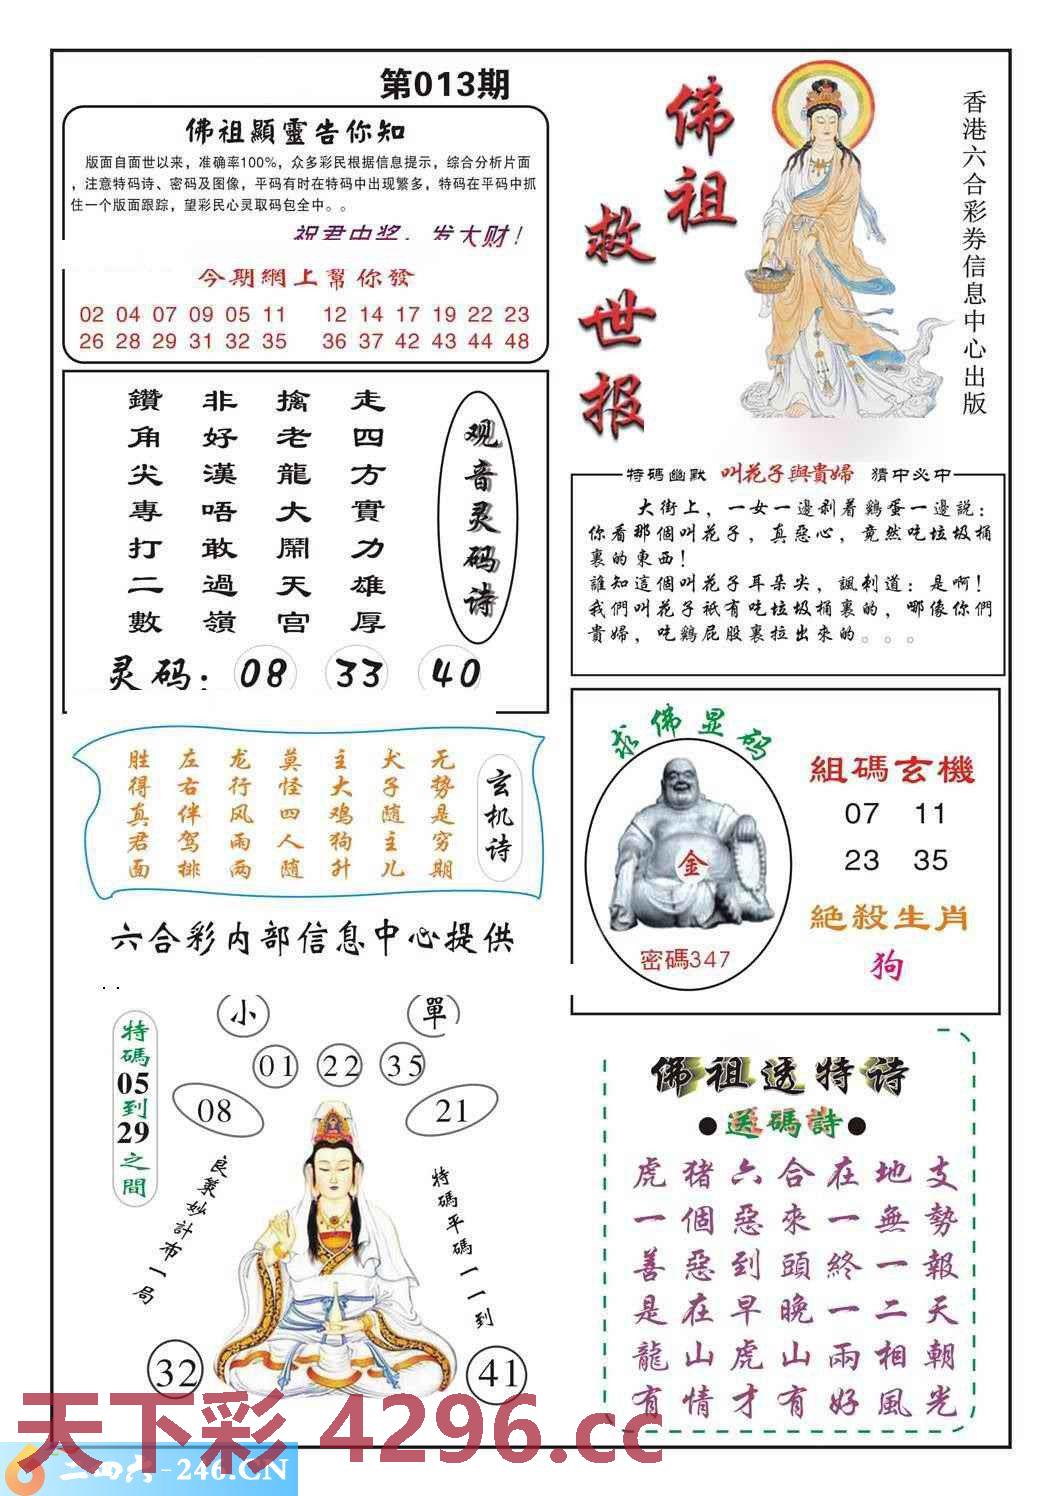 第013期
佛祖顯靈告你知
版面自面世以来，准确率100%，众多彩民根据信息提示，综合分析片面
，注意特码诗、密码及图像，平码有时在特码中出现繁多，特码在平码中抓
住一个版面跟踪，望彩民心灵取码包全中。。
祝君中奖，发大财！
今期網上幫你發
02 04 07 09 05 11 12 14 17 19 22 23
26 28 29 31 32 35 36 37 42 43 44 48
佛祖
救世报
香港六合彩券信息中心出版
观音灵码诗
走四方實力雄厚
擒老龍大鬧天宫
非好漢唔敢過嶺
鑽角尖專打二數
灵码：08 33 40
特碼幽默 叫花子與貴婦 猜中必中
大街上，一女一邊剥着鷄蛋一邊説：
你看那個叫花子，真惡心，竟然吃垃圾桶
裏的東西！
誰知這個叫花子耳朵尖，諷刺道：是啊！
我們叫花子衹有吃垃圾桶裏的，哪像你們
貴婦，吃鷄屁股裏拉出來的。。。
玄机诗
无势是穷期
犬子随主儿
主大鸡狗升
莫怪四人随
龙行风雨两
左右伴驾排
胜得真君面
六合彩内部信息中心提供
求佛显码
金
密碼347
組碼玄機
07 11
23 35
絶殺生肖
狗
小 單
01 22 35
08 21
特碼05到29之間
良策妙計布一局
特碼平碼一一到
32 41
佛祖透特诗
●送碼詩●
虎猪六合在地支
一個惡來一無勢
善惡到頭終一報
是在早晚一二天
龍山虎山兩相朝
有情才有好風光
天下彩 4296.cc
二四六-246.CN